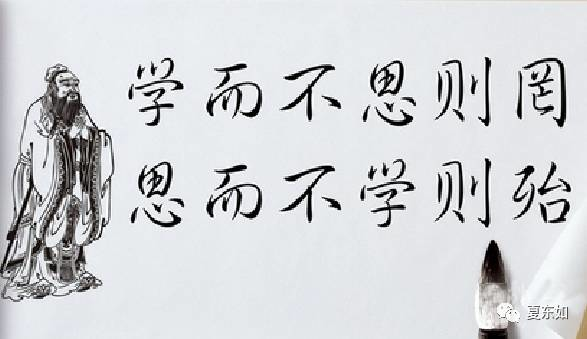 学而不思则罔
思而不学则殆
夏东如